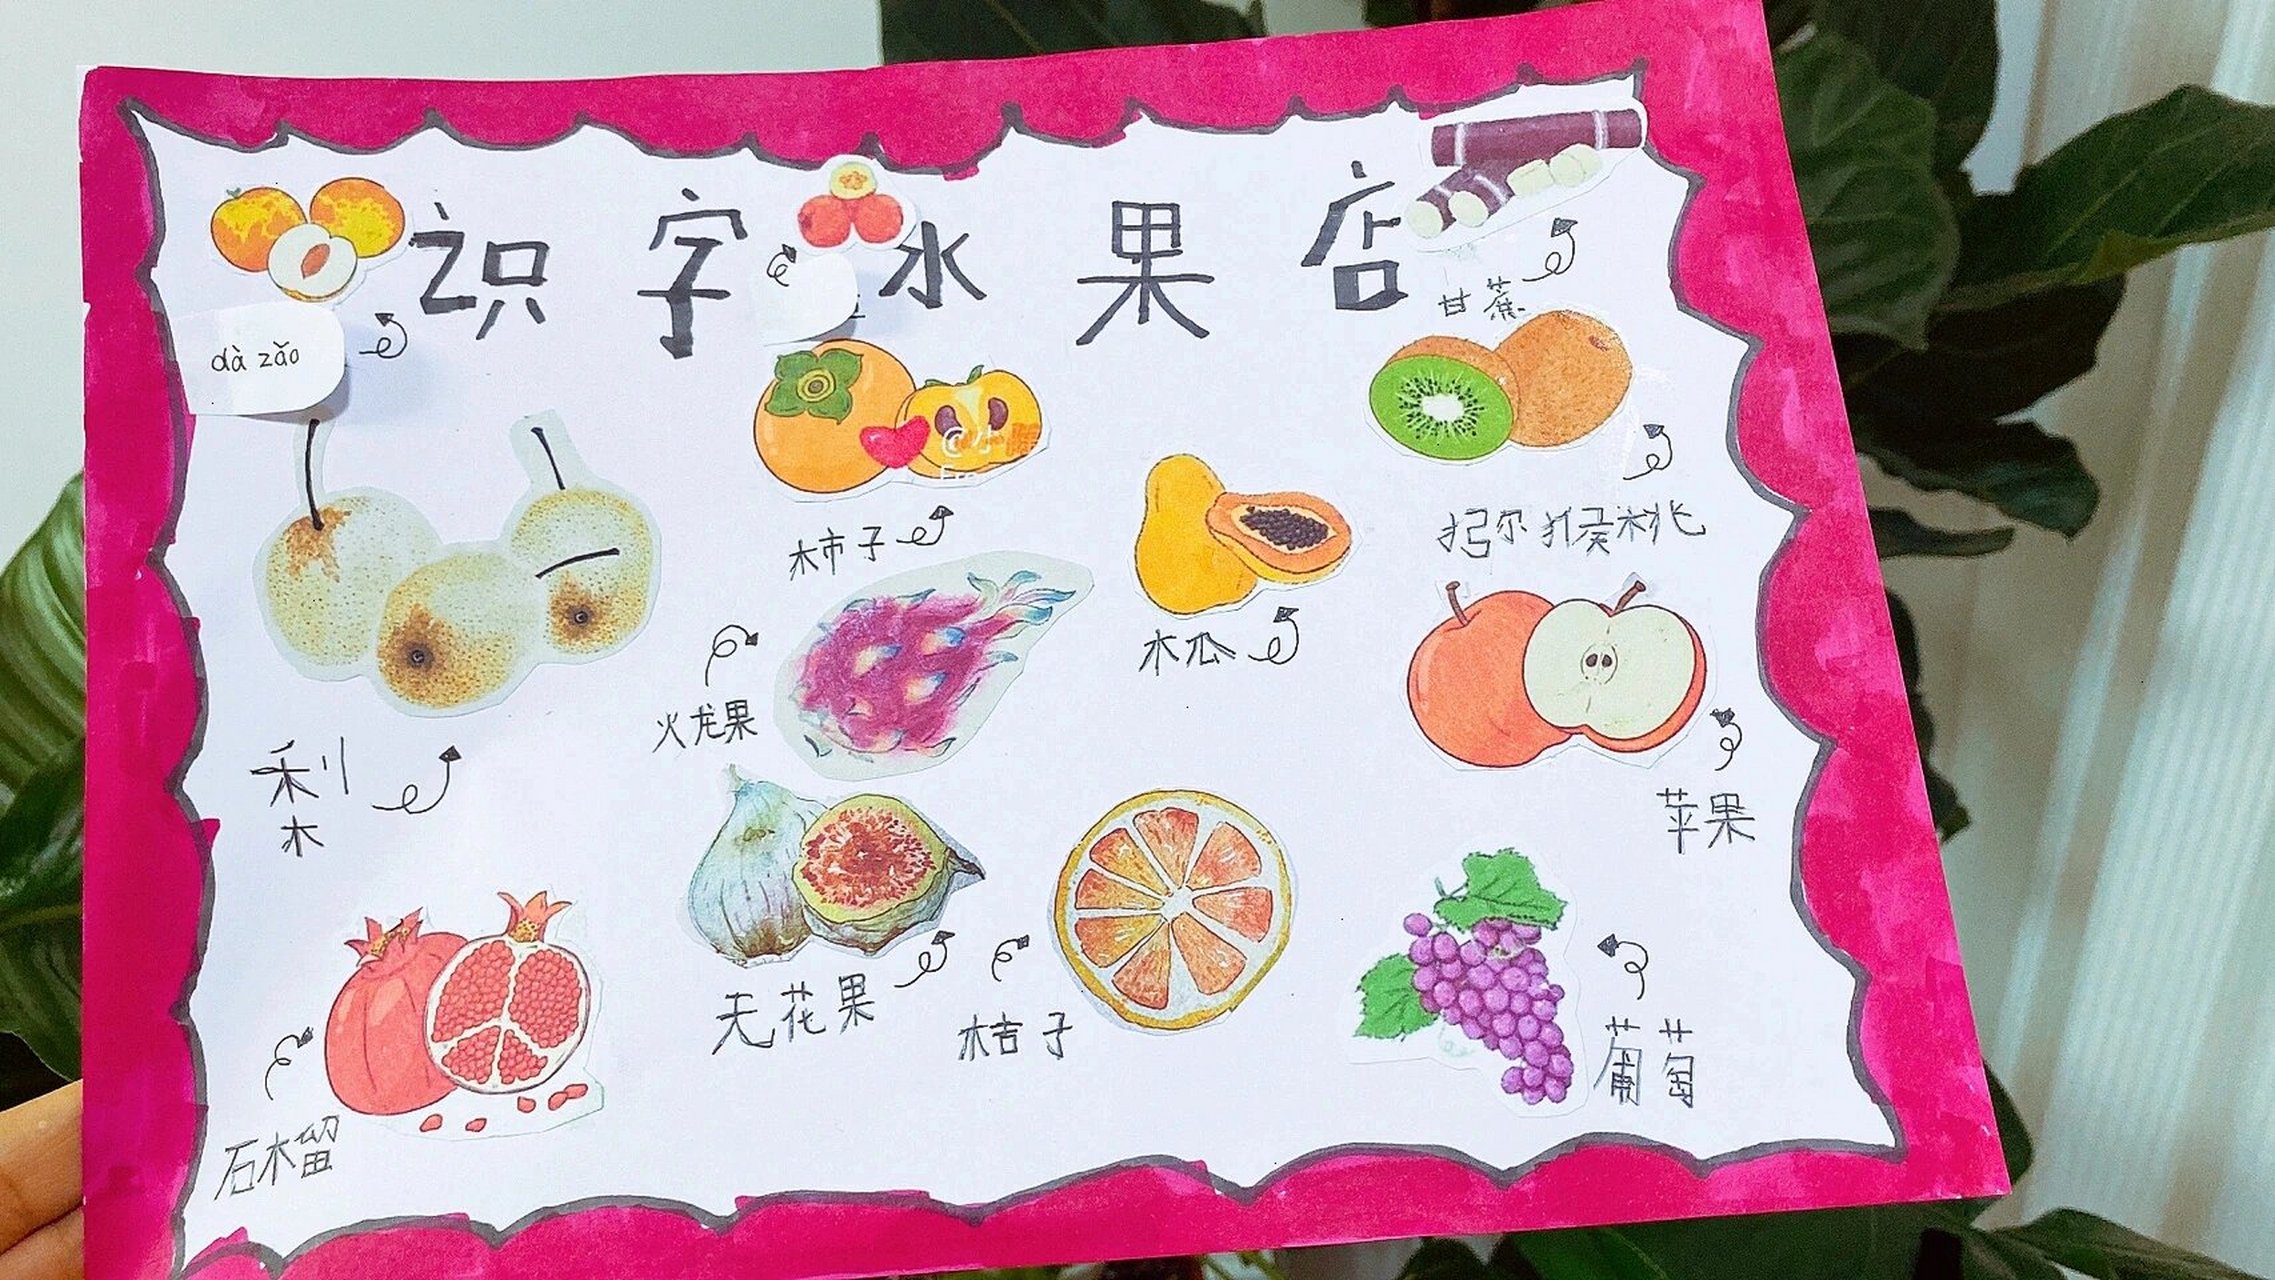 识字水果店
甘蔗
dà zǎo
柿子
猕猴桃
木瓜
火龙果
梨
苹果
无花果
桔子
葡萄
石榴